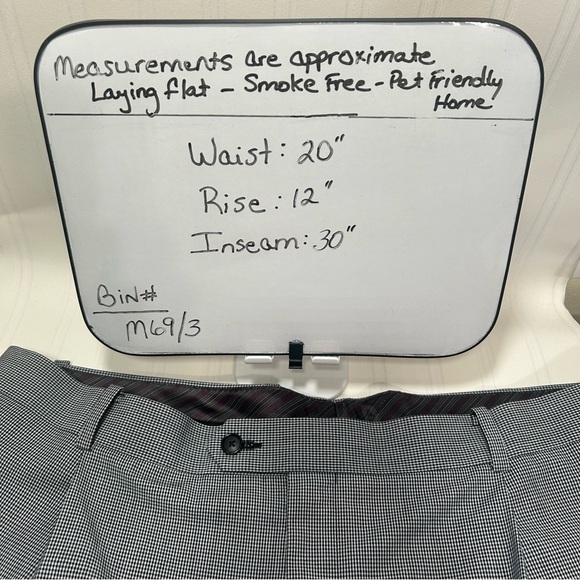 Measurements are approximate
Laying flat - Smoke Free - Pet Friendly
Home
Waist: 20"
Rise: 12"
Inseam: 30"
BiN#
M69/3